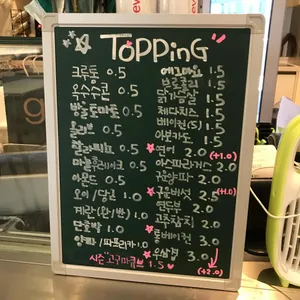 TOPPING
크루통 0.5
옥수수콘 0.5
방울토마토 0.5
올리브 0.5
할라피뇨 0.5
마늘후레이크 0.5
아몬드 0.5
오이/당근 1.0
계란(완/반) 1.0
단호박 1.0
양파/파프리카 1.0
시즌 고구마큐브 1.5
에그마요 1.5
브로콜리 1.5
닭가슴살 1.5
체다치즈 1.5
베이컨(S) 1.5
아보카도 1.5
연어 2.0 (+1.0)
아스파라거스 2.0
구운양파 2.0
구운버섯 2.5 (+1.0)
연두부 2.0
고추참치 2.0
통베이컨 3.0
우삼겹 3.0
(+2.0)